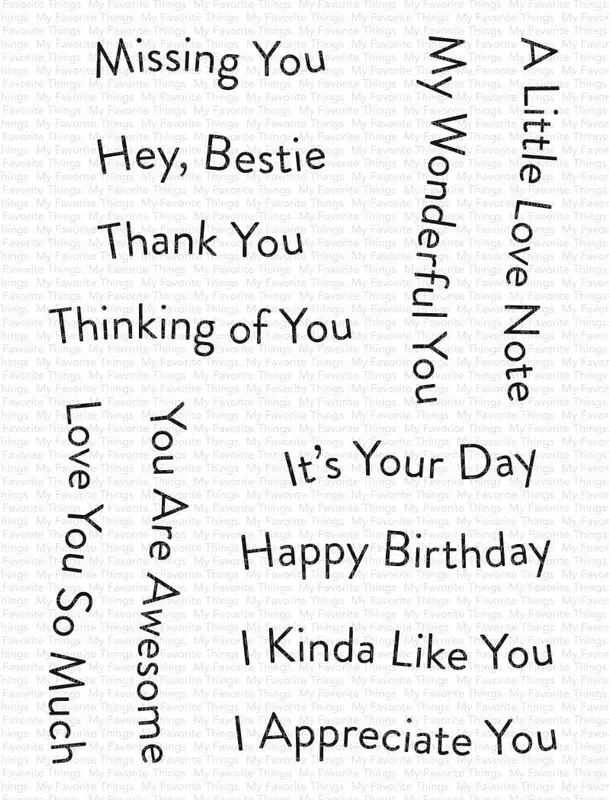 Missing You
Hey, Bestie
Thank You
Thinking of You
A Little Love Note
My Wonderful You
You Are Awesome
Love You So Much
It's Your Day
Happy Birthday
I Kinda Like You
I Appreciate You
My Favorite Things